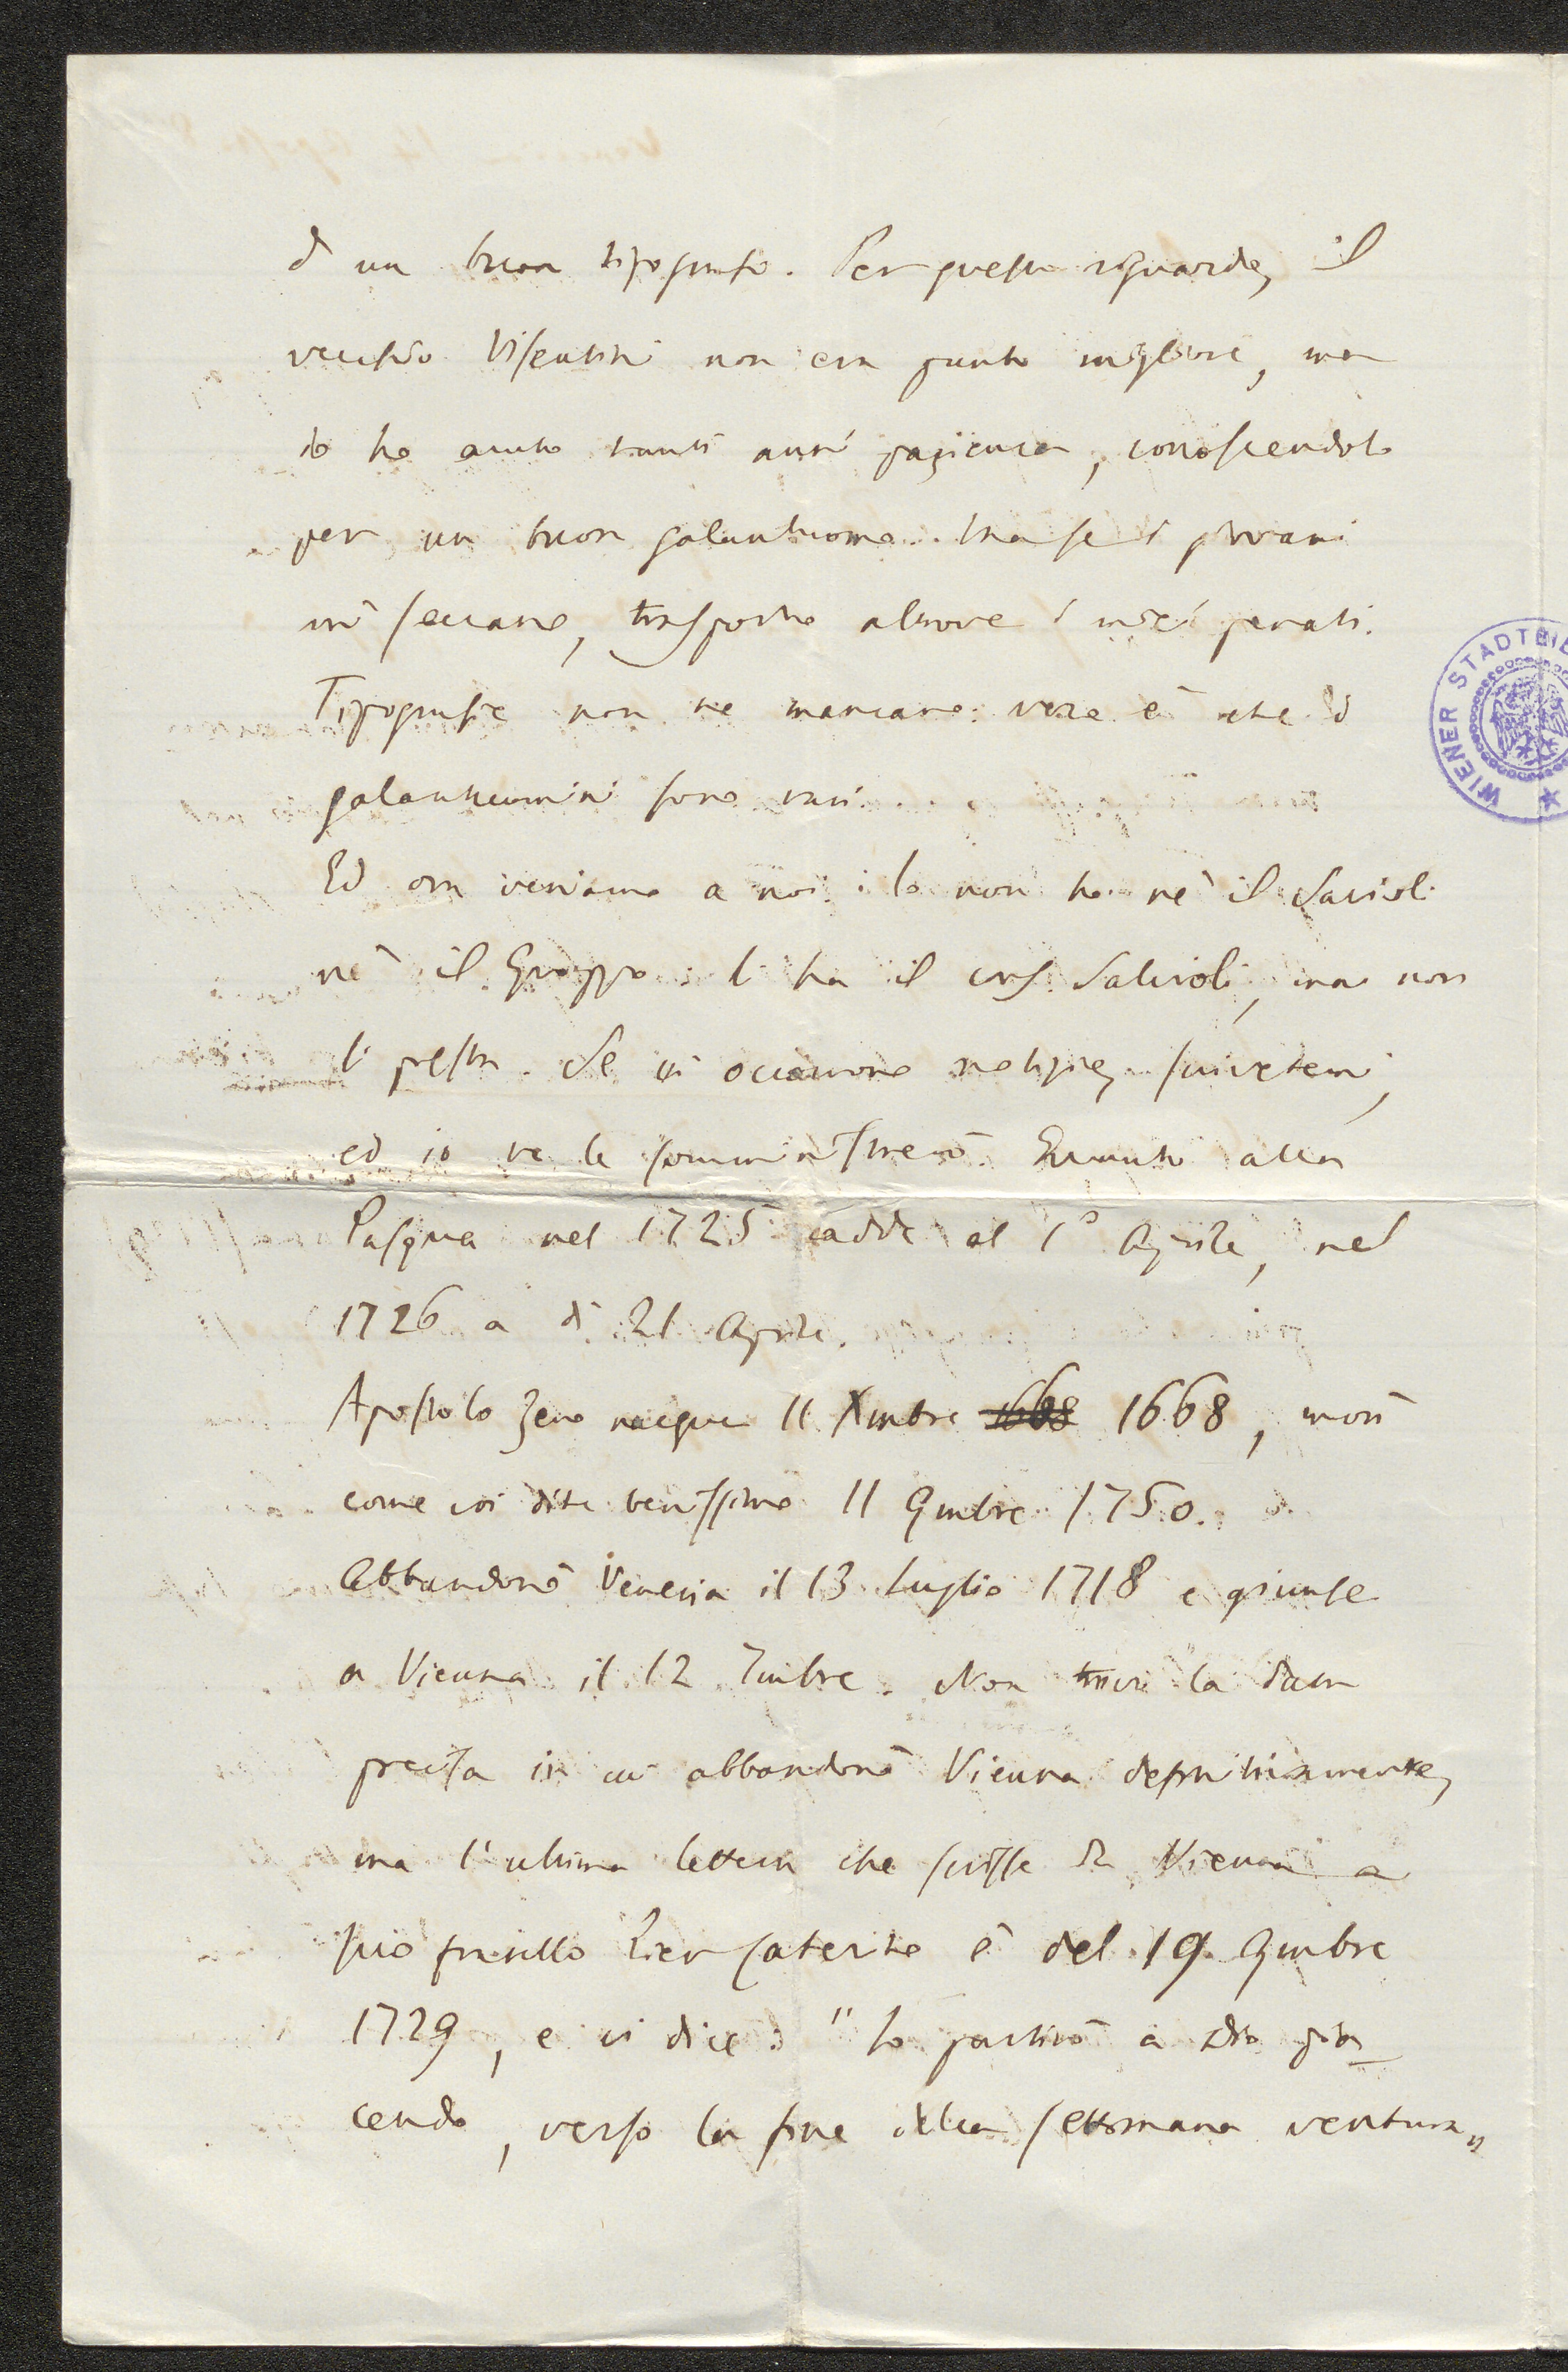 d un buon tipografo. Per questo riguardo, il
vecchio Visentini non era punto migliore, ma
io ho avuto tanti anni pazienza, conoscendolo
per un buon galantuomo. Ma se i giovani
mi seccano, trasporto altrove i miei penati.
Tipografie non ne mancano: vero è che i
galantuomini sono rari.
Ed ora veniamo a noi: Io non ho nè il Savioli
nè il Groppo: li ha il cav. Salvioli, ma non
li presta. Se vi occorrono notizie, scrivetemi,
ed io ve le somministrerò. Quanto alla
Pasqua nel 1725 cadde al 1° Aprile, nel
1726 a dì 21 Aprile.
Apostolo Zeno nacque 11 Xmbre 1668 1668, morì
come voi dite benissimo 11 9mbre 1750.
Abbandonò Venezia il 13 Luglio 1718 e giunse
a Vienna il 12 7mbre. Non trovo la data
precisa in cui abbandonò Vienna definitivamente,
ma l'ultima lettera che scrisse da Vienna a
suo fratello Pier Caterino è del 19 9mbre
1729, e vi dice: "Io partirò a Dio pia_
cendo, verso la fine della settimana ventura„
WIENER STADTBIB